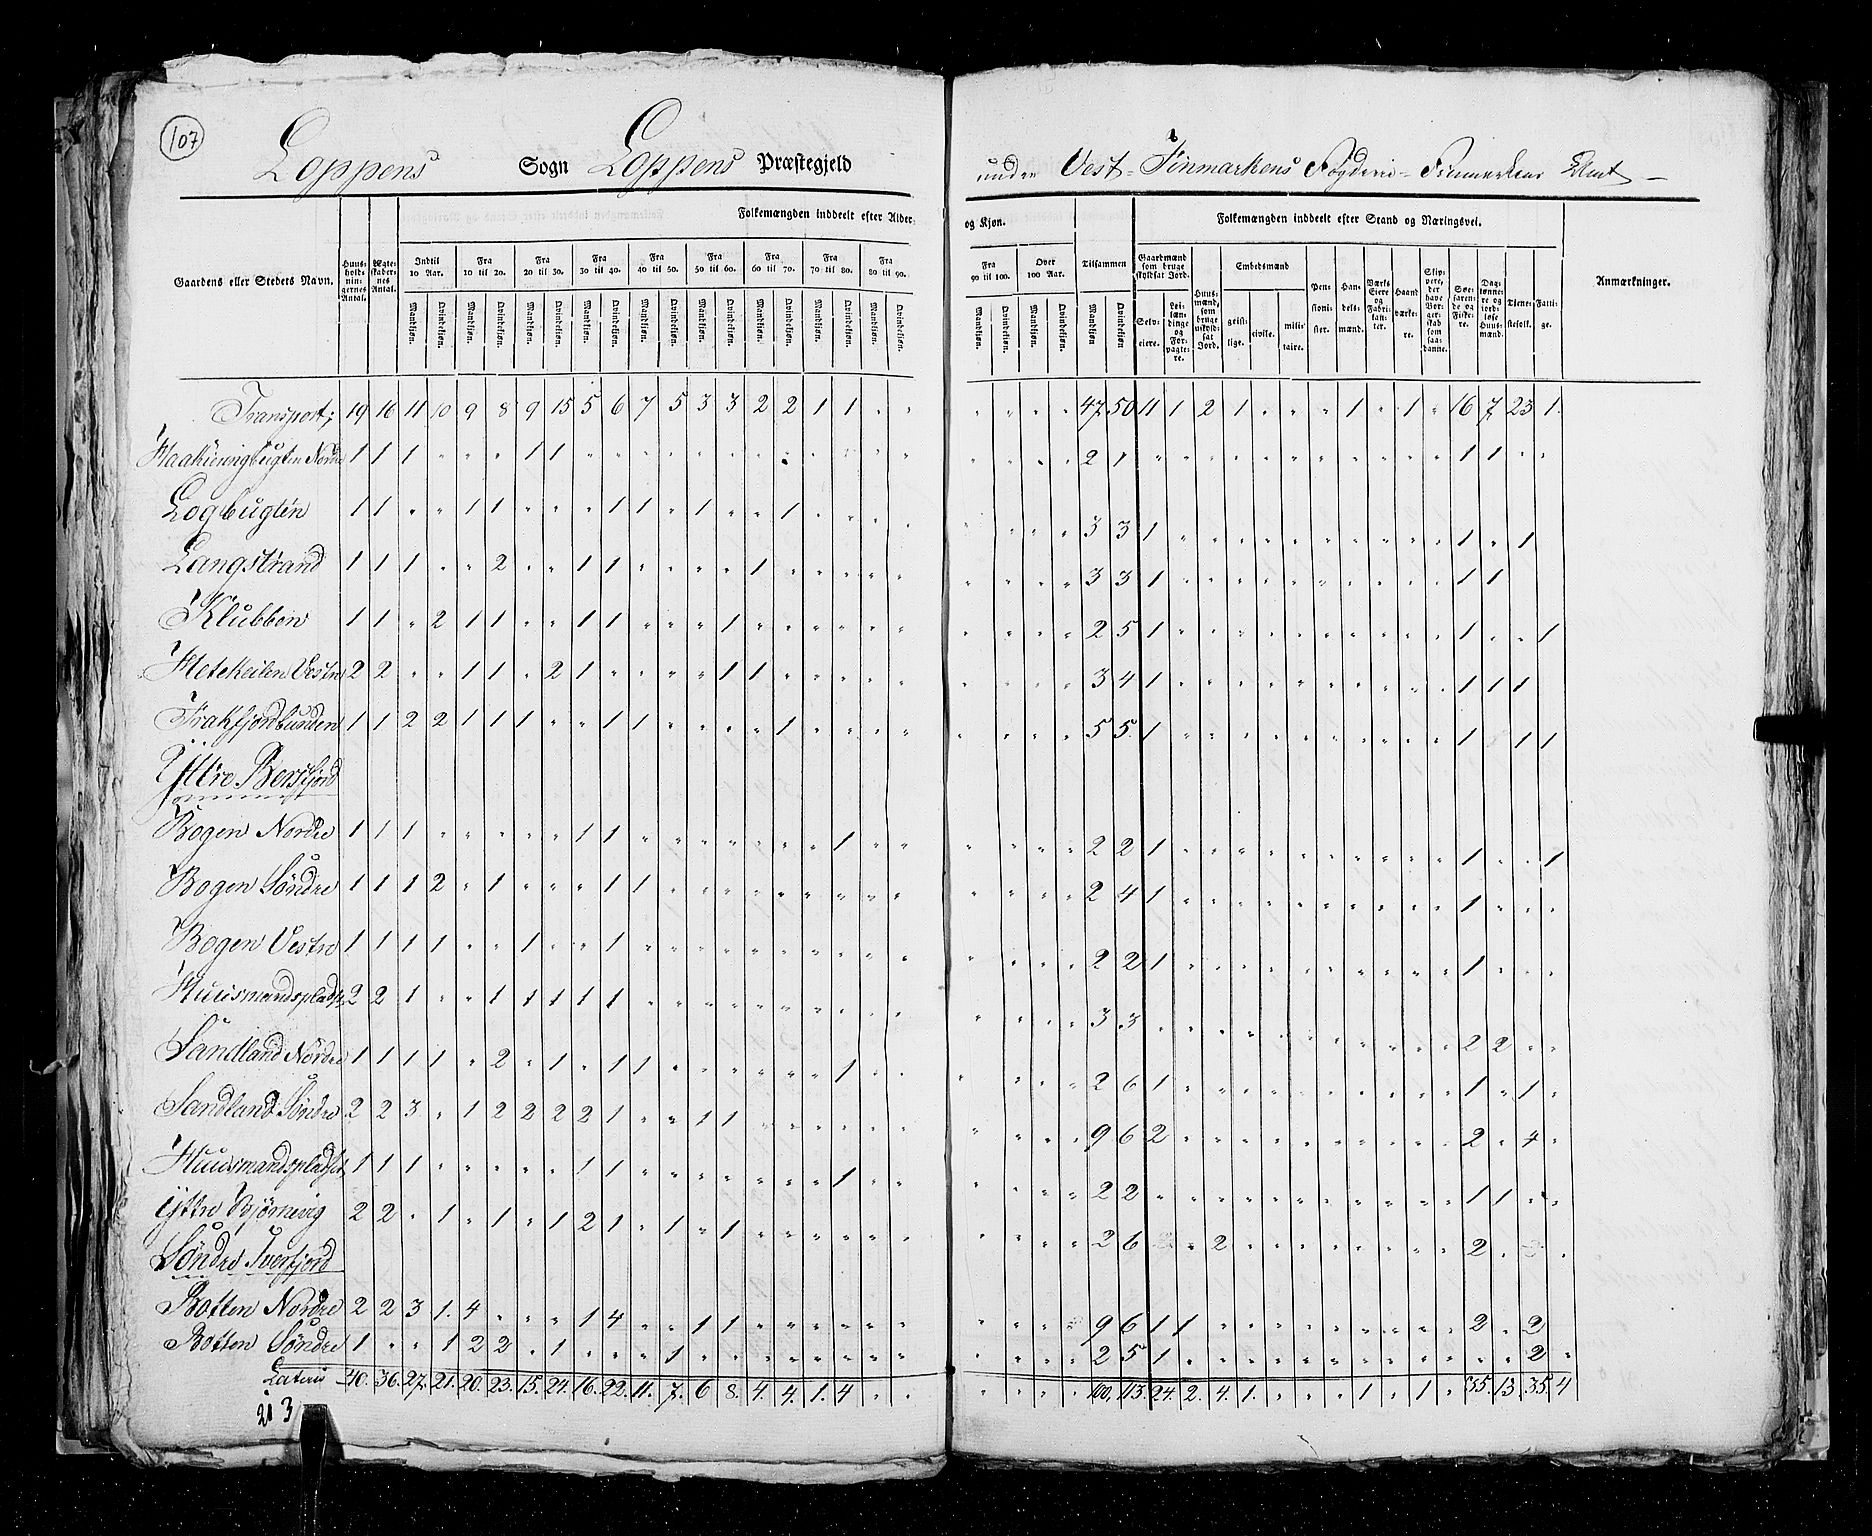 107
Loppens Sogn Loppens Præstegjeld
under Vest-Finmarkens Fogderie - Finmarkens Amt -
Gaardens eller Stedets Navn. Huusholdningernes Antal. Ægteskabernes Antal. Folkemængden inddeelt efter Alder og Kjøn. Tilsammen Folkemængden inddeelt efter Stand og Næringsvei. Anmærkninger.
Indtil 10 Aar. Fra 10 til 20. Fra 20 til 30. Fra 30 til 40. Fra 40 til 50. Fra 50 til 60. Fra 60 til 70. Fra 70 til 80. Fra 80 til 90. Fra 90 til 100. Over 100 Aar.
Mandkjøn. Qvindekjøn.
Gaardmænd som bruge skyldsat Jord. Selveiere. Leilændinge og Forpagtere. Huusmænd, som bruge uskyldsat Jord. Embedsmænd geistlige. civile. militaire. Pensionister. Handelsmænd. Værks Eiere og Fabrikanter. Haandværkere. Skippere, der have Borgerskab som saadanne. Søefarende og Fiskere. Daglønnere og jordløse Huusmænd. Tjenestefolk. Fattige.
Transport; 19 16 11 10 9 8 9 15 5 6 7 5 3 3 2 2 1 1 " " " " " " 47 50 11 1 2 1 " " " 1 " 1 " 16 7 23 1.
Haakiæringbugten Nordre 1 1 1 " " " 1 1 " " " " " " " " " " " " " " " " 2 1 " " " " " " " " " " " 1 1 " "
Logbugten 1 1 " " 1 1 " " " 1 1 " 1 " " 1 " " " " " " " " 3 3 1 " " " " " " " " " " 1 " 1
Langstrand 1 1 1 " " 2 " " 1 1 " " " " 1 " " " " " " " " " 3 3 1 " " " " " " " " " " 1 1
Klubben 1 1 " 2 1 1 " " 1 1 " " " 1 " " " " " " " " " " 2 5 1 " " " " " " " " " " 1 " " 1
Vestre 2 2 " " 1 1 " 2 1 " " " " 1 1 " " " " " " " " " 3 4 1 " " " " " " " " " " 1 1 1
Frakfjordbunden 1 1 2 2 1 1 1 " " 1 1 " " " " 1 " " " " " " " " 5 5 1 " " " " " " " " " " 1 " 1 1
Yttre Bersfjord
Bogen Nordre 1 1 1 " " " " " 1 1 " " " " " " " 1 " " " " " " 2 2 1 " " " " " " " " " " 1 " " 1
Bogen Söndre 1 1 1 2 " 1 " " " 1 1 " " " " " " " " " " " " " 2 4 1 " " " " " " " " " " 1 " " "
Bogen Vestre 1 1 1 1 " " 1 " " 1 " " " " " " " " " " " " " " 2 2 1 " " " " " " " " " " 1 " " "
Huusmandspladse 2 2 1 " " 1 1 1 1 1 " " " " " " " " " " " " " " 3 3 " " " " " " " " " " " 2 2 " "
Sandland Nordre 1 1 1 1 " 2 " 1 " 1 1 " " " " " " 1 " " " " " " 2 6 1 " " " " " " " " " " 1 " 1 "
Sandland Söndre 2 2 3 " 1 2 2 2 2 1 " " 1 1 " " " " " " " " " " 9 6 2 " " " " " " " " " " 2 " 4 "
Huusmandspladser 1 1 1 " " " " " 1 1 " " " " " " " 1 " " " " " " 2 2 " " " " " " " " " " " 1 1 " "
Yttre Bjørnevig 2 2 " 1 " 1 " 1 2 1 " 1 " 1 " " " " " " " " " " 2 6 " " 2 " " " " " " " " 2 " "
Söndre Tverfjord
Botten Nordre 2 2 3 1. 4 " " " 1 4 " " 1 1 " " " " " " " " " " 9 6 1 1 " " " " " " " " " 2 " 2
Botten Söndre 1 " " 1 2 2 " 1 " " " 1 " " " " " " " " " " " " 2 5 1 " " " " " " " " " " " " 2 "
Latus 40. 36. 27. 21. 20. 23. 15. 24. 16. 22. 11. 7. 6 8. 4. 4. 1. 4 " " " " " " 100, 113. 24. 2. 4. 1. " " " 1 " 1 " 35. 13. 35. 4
213